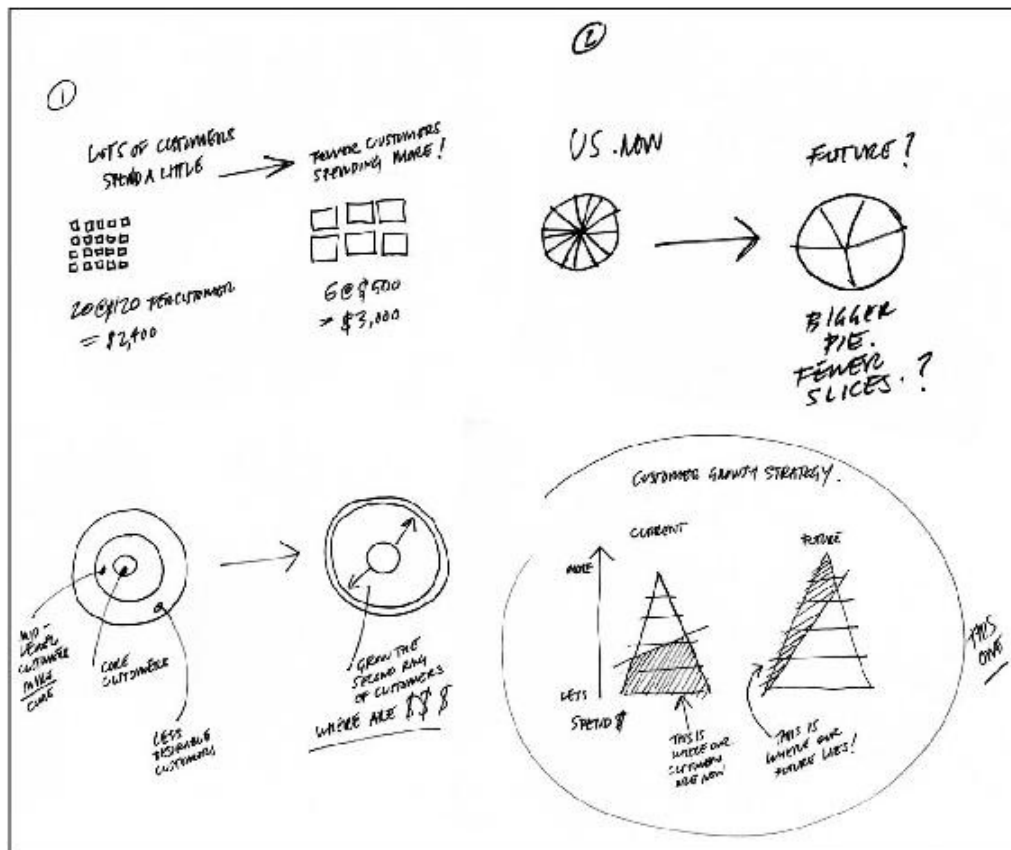 1
LOTS OF CUSTOMERS
SPEND A LITTLE
FEWER CUSTOMERS
SPENDING MORE!
20 @ $120 PER CUSTOMER
= $2,400
6 @ $500
= $3,000
2
US. NOW
FUTURE?
BIGGER
PIE.
FEWER
SLICES.?
MID-
LEVEL
CUSTOMERS
CORE
CORE
CUSTOMERS
LESS
DESIRABLE
CUSTOMERS
GROW THE
SECOND RING
OF CUSTOMERS
WHERE ARE $$$
CUSTOMER GROWTH STRATEGY.
CURRENT
FUTURE
MORE
LESS
SPEND $
THIS IS
WHERE OUR
CUSTOMERS
ARE NOW
THIS IS
WHERE OUR
FUTURE LIES!
THIS
ONE